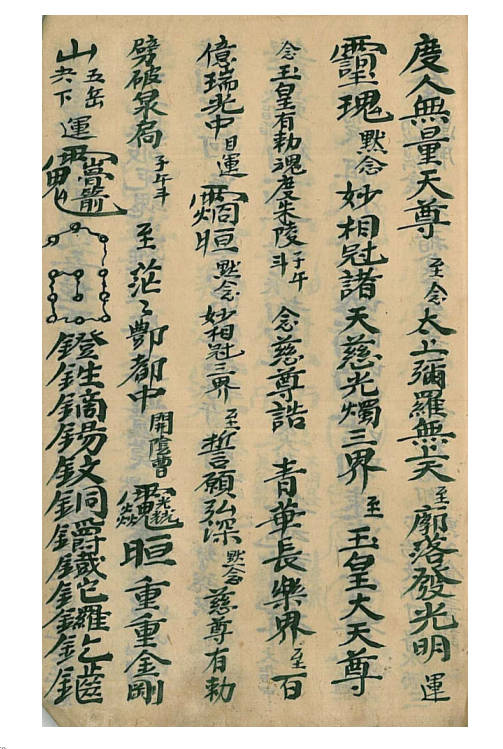 度人無量天尊 至念 太上彌羅無上天 至 廓落發光明 運
瑰 默念 妙相冠諸天慈光燭三界 至 玉皇大天尊
念 玉皇有勅魂度朱陵 子午斗 念 慈尊誥 青華長樂界 至 百
億瑞光中 目運 晅 默念 妙相冠三界 至 誓願弘深 默念 慈尊有勅
劈破泉局 子午斗 至 茫〻酆都中 開陰曹 晅 重重金剛
山 五岳 共下 運
鐙鉎鏑錫鈫銅鑞鉈鑼